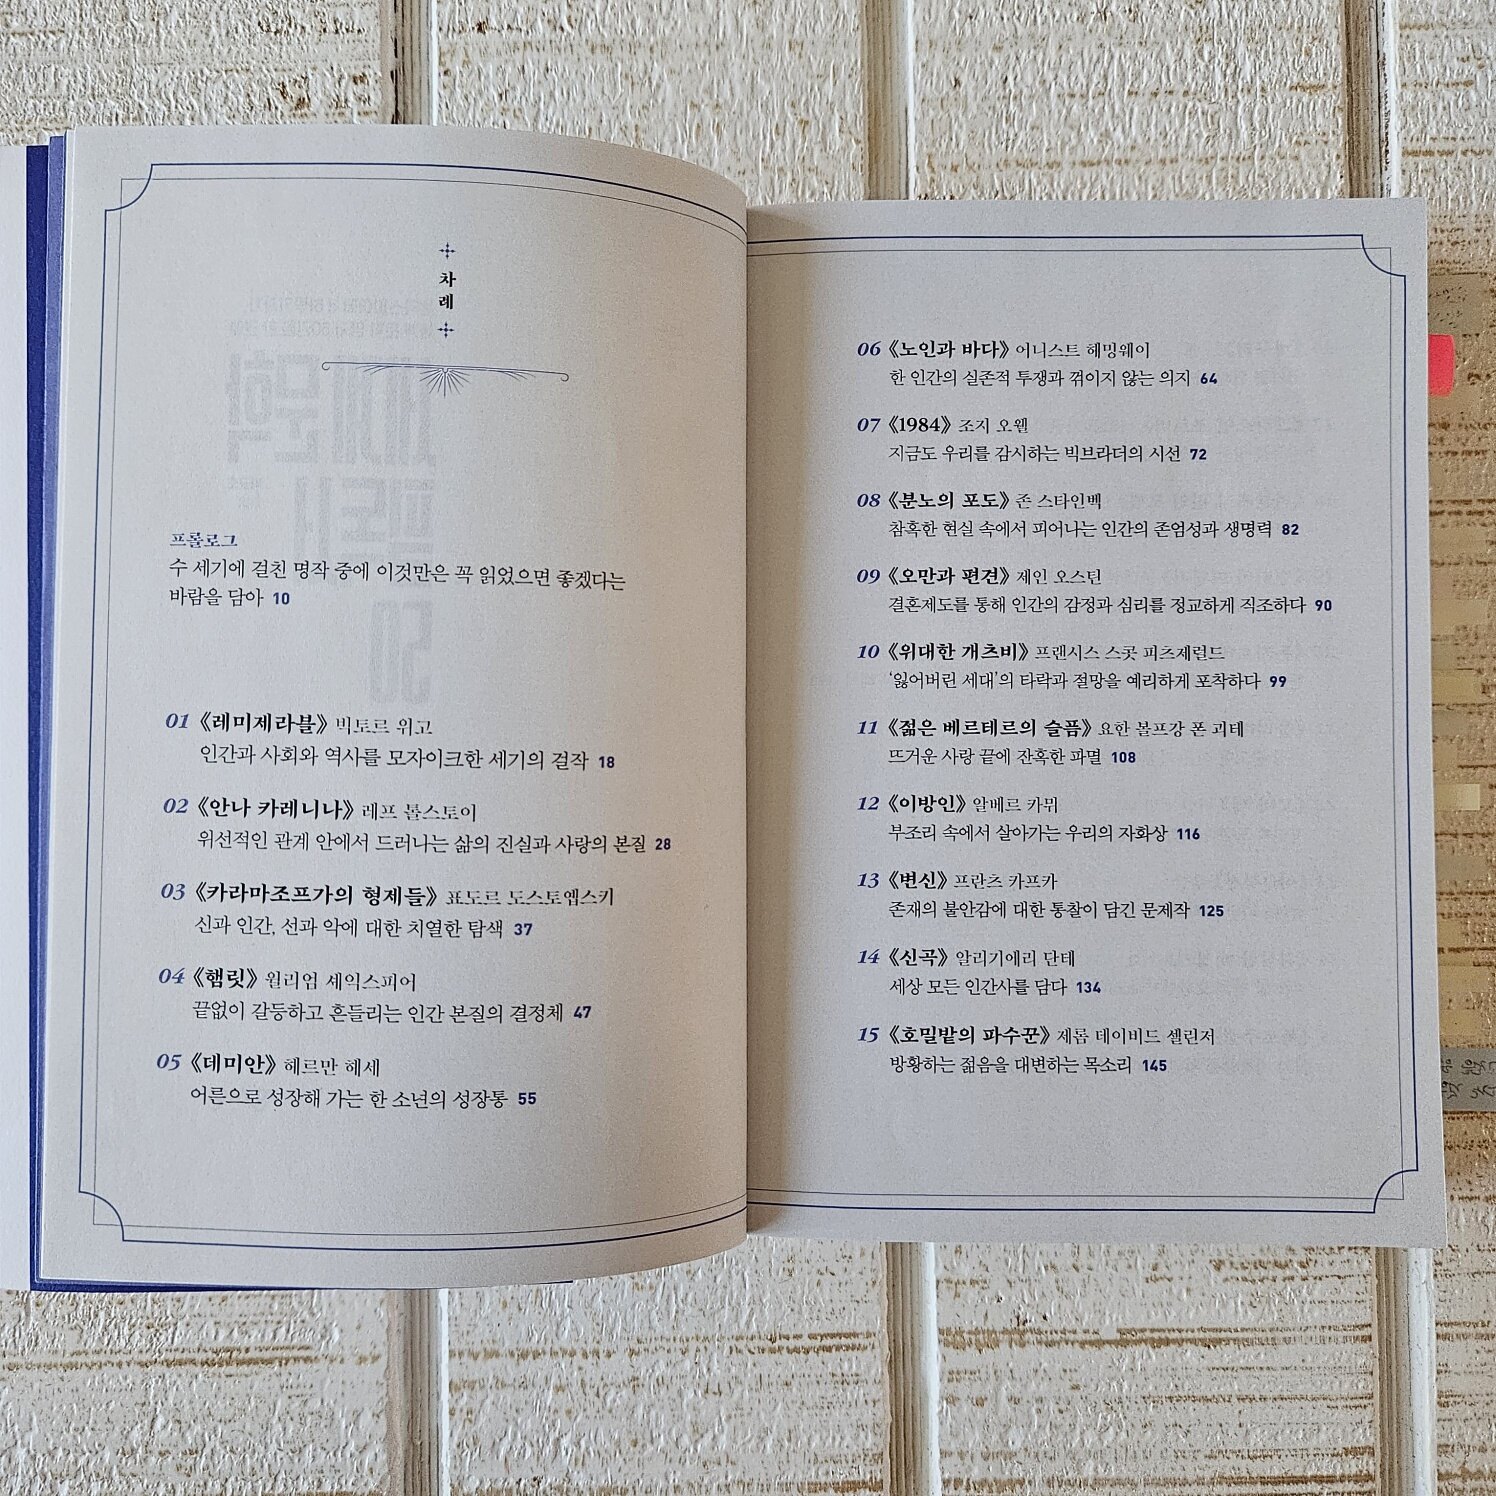 차례
프롤로그
수 세기에 걸친 명작 중에 이것만은 꼭 읽었으면 좋겠다는
바람을 담아 10
01 《레미제라블》 빅토르 위고
인간과 사회와 역사를 모자이크한 세기의 걸작 18
02 《안나 카레니나》 레프 톨스토이
위선적인 관계 안에서 드러나는 삶의 진실과 사랑의 본질 28
03 《카라마조프가의 형제들》 표도르 도스토옙스키
신과 인간, 선과 악에 대한 치열한 탐색 37
04 《햄릿》 윌리엄 셰익스피어
끝없이 갈등하고 흔들리는 인간 본질의 결정체 47
05 《데미안》 헤르만 헤세
어른으로 성장해 가는 한 소년의 성장통 55
06 《노인과 바다》 어니스트 헤밍웨이
한 인간의 실존적 투쟁과 꺾이지 않는 의지 64
07 《1984》 조지 오웰
지금도 우리를 감시하는 빅브라더의 시선 72
08 《분노의 포도》 존 스타인벡
참혹한 현실 속에서 피어나는 인간의 존엄성과 생명력 82
09 《오만과 편견》 제인 오스틴
결혼제도를 통해 인간의 감정과 심리를 정교하게 직조하다 90
10 《위대한 개츠비》 프랜시스 스콧 피츠제럴드
‘잃어버린 세대’의 타락과 절망을 예리하게 포착하다 99
11 《젊은 베르테르의 슬픔》 요한 볼프강 폰 괴테
뜨거운 사랑 끝에 잔혹한 파멸 108
12 《이방인》 알베르 카뮈
부조리 속에서 살아가는 우리의 자화상 116
13 《변신》 프란츠 카프카
존재의 불안감에 대한 통찰이 담긴 문제작 125
14 《신곡》 알리기에리 단테
세상 모든 인간사를 담다 134
15 《호밀밭의 파수꾼》 제롬 데이비드 샐린저
방황하는 젊음을 대변하는 목소리 145